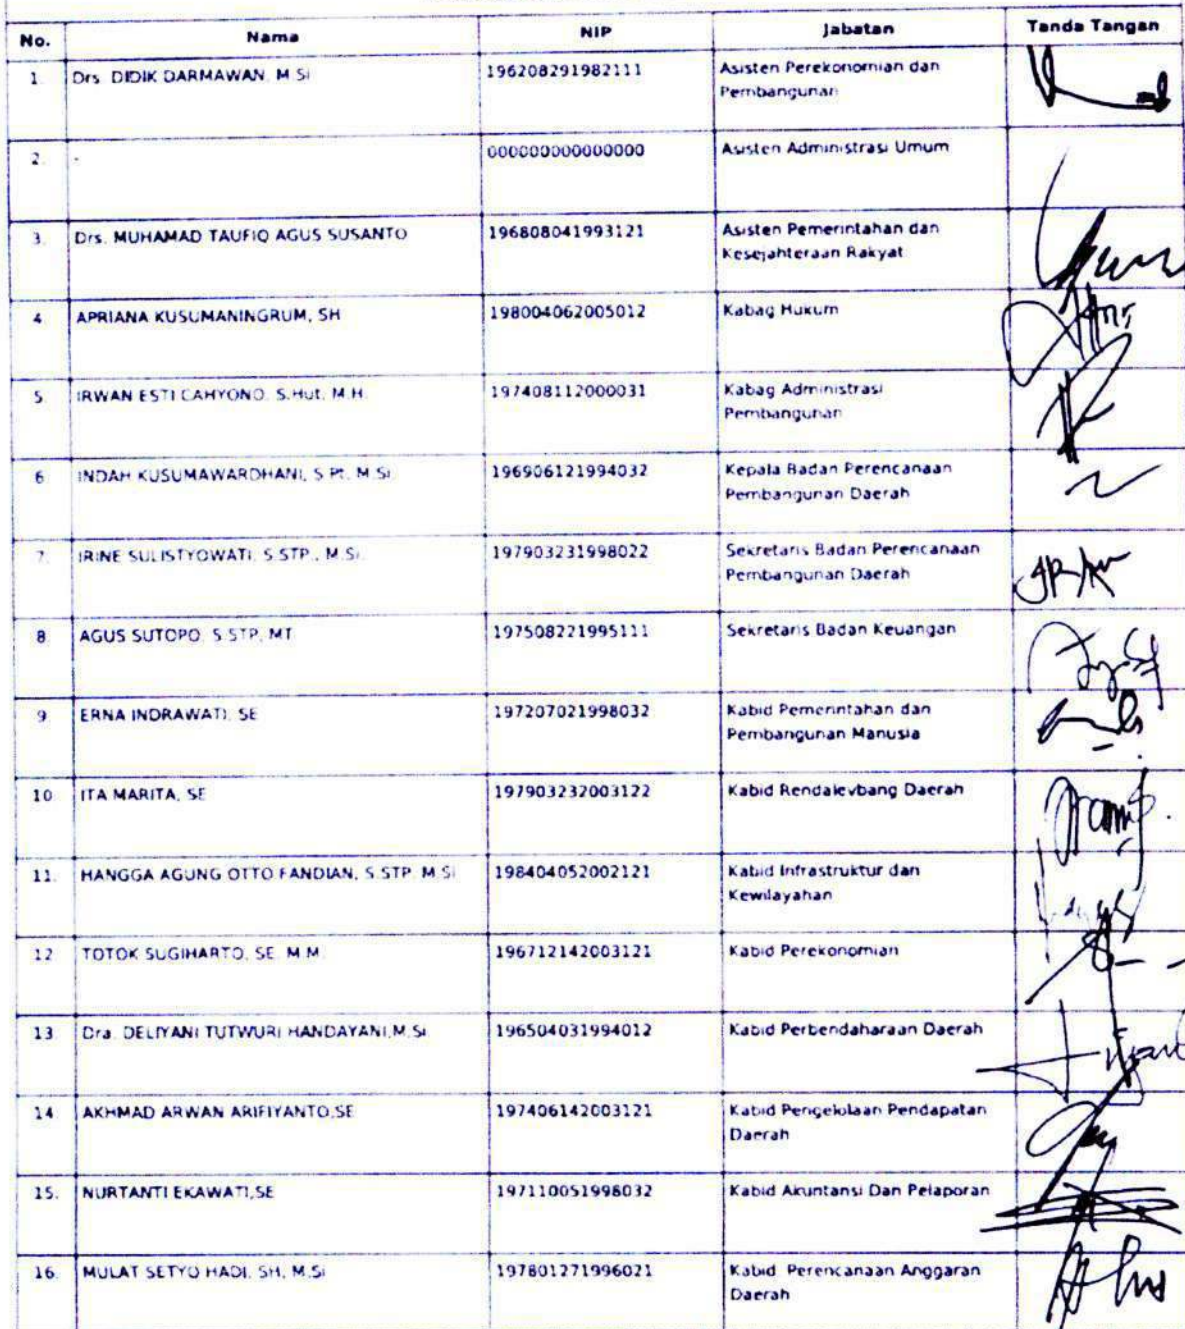 No. Nama NIP Jabatan Tanda Tangan
1. Drs. DIDIK DARMAWAN, M.Si 196208291982111 Asisten Perekonomian dan
Pembangunan
2. - 000000000000000 Asisten Administrasi Umum
3. Drs. MUHAMAD TAUFIQ AGUS SUSANTO 196808041993121 Asisten Pemerintahan dan
Kesejahteraan Rakyat
4. APRIANA KUSUMANINGRUM, SH 198004062005012 Kabag Hukum
5. IRWAN ESTI CAHYONO, S.Hut, M.H. 197408112000031 Kabag Administrasi
Pembangunan
6. INDAH KUSUMAWARDHANI, S.Pt, M.Si. 196906121994032 Kepala Badan Perencanaan
Pembangunan Daerah
7. IRINE SULISTYOWATI, S.STP., M.Si. 197903231998022 Sekretaris Badan Perencanaan
Pembangunan Daerah
8. AGUS SUTOPO, S.STP, MT 197508221995111 Sekretaris Badan Keuangan
9. ERNA INDRAWATI, SE 197207021998032 Kabid Pemerintahan dan
Pembangunan Manusia
10. ITA MARITA, SE 197903232003122 Kabid Rendalevbang Daerah
11. HANGGA AGUNG OTTO FANDIAN, S.STP. M.Si 198404052002121 Kabid Infrastruktur dan
Kewilayahan
12. TOTOK SUGIHARTO, SE. M.M. 196712142003121 Kabid Perekonomian
13. Dra. DELIYANI TUTWURI HANDAYANI,M.Si. 196504031994012 Kabid Perbendaharaan Daerah
14. AKHMAD ARWAN ARIFIYANTO,SE 197406142003121 Kabid Pengelolaan Pendapatan
Daerah
15. NURTANTI EKAWATI,SE 197110051998032 Kabid Akuntansi Dan Pelaporan
16. MULAT SETYO HADI, SH, M.Si 197801271996021 Kabid Perencanaan Anggaran
Daerah